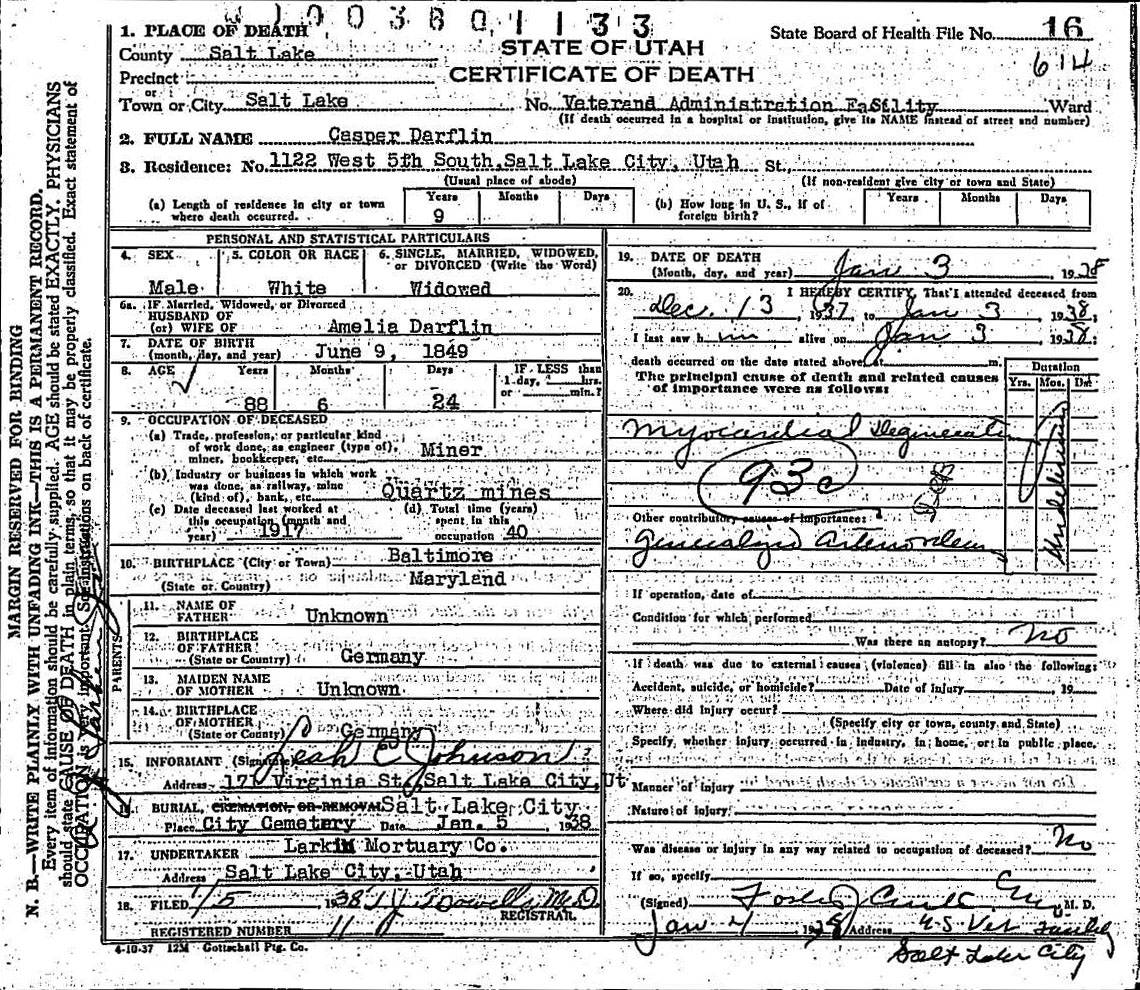 1003601133
1. PLACE OF DEATH
State Board of Health File No. 16
County Salt Lake
STATE OF UTAH
614
Precinct
CERTIFICATE OF DEATH
or
Town or City Salt Lake No. Veterand Administration Facility Ward
(If death occurred in a hospital or institution, give its NAME instead of street and number)
2. FULL NAME Casper Darflin
3. Residence: No. 1122 West 5th South, Salt Lake City, Utah St.,
(Usual place of abode) (If non-resident give city or town and State)
(a) Length of residence in city or town where death occurred. Years 9 Months Days
(b) How long in U. S., if of foreign birth? Years Months Days
PERSONAL AND STATISTICAL PARTICULARS
4. SEX Male
5. COLOR OR RACE White
6. SINGLE, MARRIED, WIDOWED, or DIVORCED (Write the Word) Widowed
6a. IF Married, Widowed, or Divorced
HUSBAND OF
(or) WIFE OF Amelia Darflin
7. DATE OF BIRTH
(month, day, and year) June 9, 1849
8. AGE Years 88 Months 6 Days 24 IF LESS than 1 day, hrs. or min.?
9. OCCUPATION OF DECEASED
(a) Trade, profession, or particular kind
of work done, as engineer (type of),
miner, bookkeeper, etc. Miner
(b) Industry or business in which work
was done, as railway, mine
(kind of), bank, etc. Quartz mines
(c) Date deceased last worked at
this occupation (month and
year) 1917
(d) Total time (years)
spent in this
occupation 40
10. BIRTHPLACE (City or Town) Baltimore
(State or Country) Maryland
PARENTS
11. NAME OF
FATHER Unknown
12. BIRTHPLACE
OF FATHER
(State or Country) Germany
13. MAIDEN NAME
OF MOTHER Unknown
14. BIRTHPLACE
OF MOTHER
(State or Country) Germany
15. INFORMANT (Signature) Leah C Johnson
Address 171 Virginia St, Salt Lake City, Ut
BURIAL, CREMATION, OR REMOVAL Salt Lake City
Place City Cemetery Date Jan. 5 1938
17. UNDERTAKER Larkin Mortuary Co.
Address Salt Lake City, Utah
18. FILED 1/5 1938 M.D.
REGISTRAR.
REGISTERED NUMBER 11
4-10-37 12M Gottschall Ptg. Co.
19. DATE OF DEATH
(Month, day, and year) Jan 3, 1938
20. I HEREBY CERTIFY, That I attended deceased from
Dec. 13, 1937 to Jan 3 1938,
I last saw h im alive on Jan 3 1938;
death occurred on the date stated above, at m.
The principal cause of death and related causes
of importance were as follows:
Duration
Yrs. Mos. Ds.
Myocardial Degeneration
93c
Other contributory causes of importance:
If operation, date of
Condition for which performed
Was there an autopsy? No
If death was due to external causes (violence) fill in also the following:
Accident, suicide, or homicide? Date of injury , 19
Where did injury occur?
(Specify city or town, county and State)
Specify, whether injury occurred in industry, in home, or in public place.
Manner of injury
Nature of injury
Was disease or injury in any way related to occupation of deceased? No
If so, specify
(Signed) M. D.
Jan 4 1938 Address U.S. Vet
Salt Lake City
MARGIN RESERVED FOR BINDING
N. B.—WRITE PLAINLY WITH UNFADING INK—THIS IS A PERMANENT RECORD.
Every item of information should be carefully supplied. AGE should be stated EXACTLY. PHYSICIANS
should state CAUSE OF DEATH in plain terms, so that it may be properly classified. Exact statement of
OCCUPATION is very important. See instructions on back of certificate.